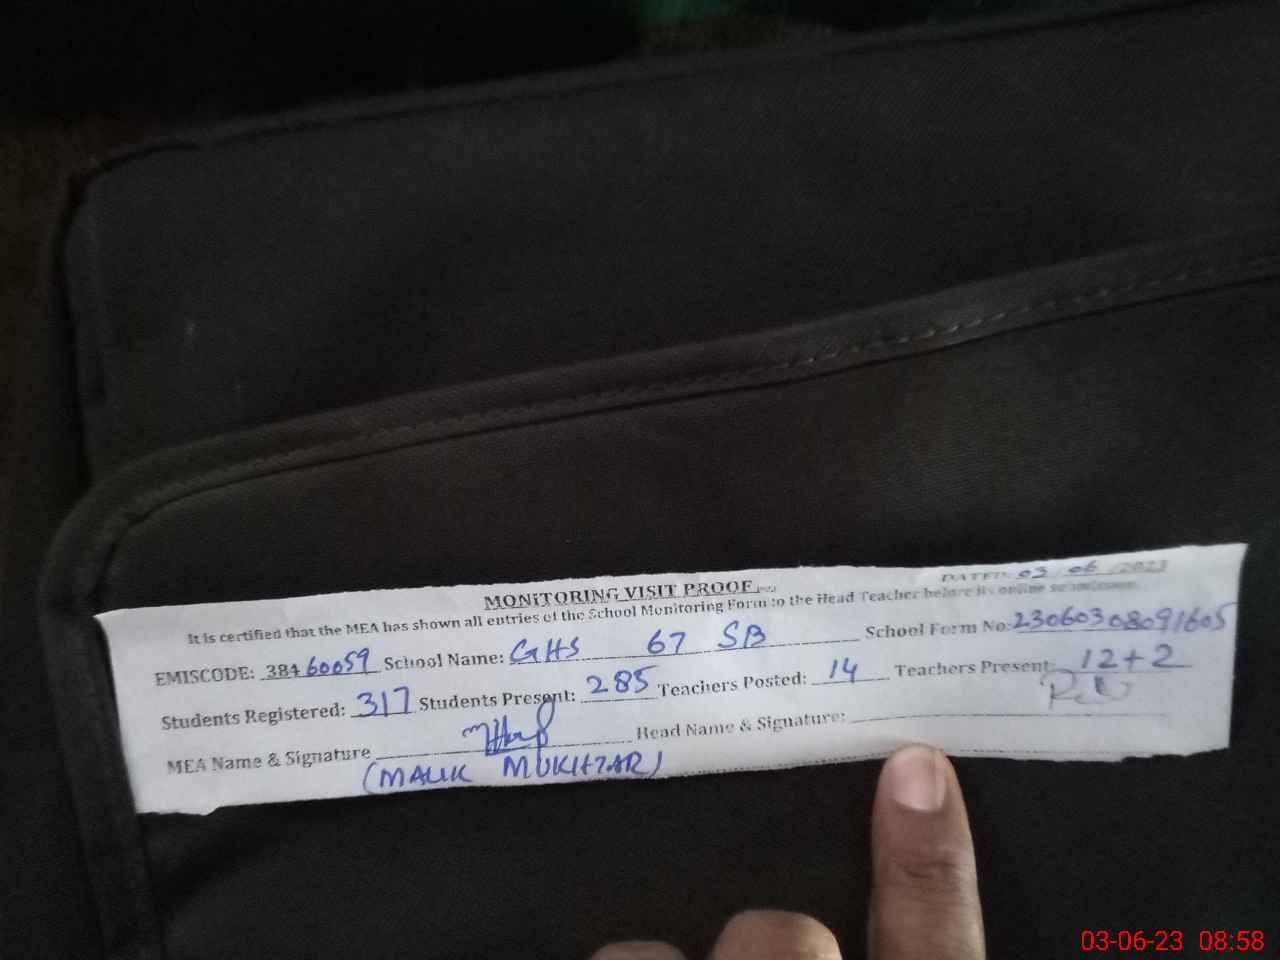 MONITORING VISIT PROOF
DATED: 03/06/2023
It is certified that the MEA has shown all entries of the School Monitoring Form to the Head Teacher before its online submission.
EMISCODE: 38460059 School Name: GHS 67 SB School Form No: 23060308091605
Students Registered: 317 Students Present: 285 Teachers Posted: 14 Teachers Present: 12+2
MEA Name & Signature Head Name & Signature:
(MALIK MUKHTAR)
03-06-23 08:58